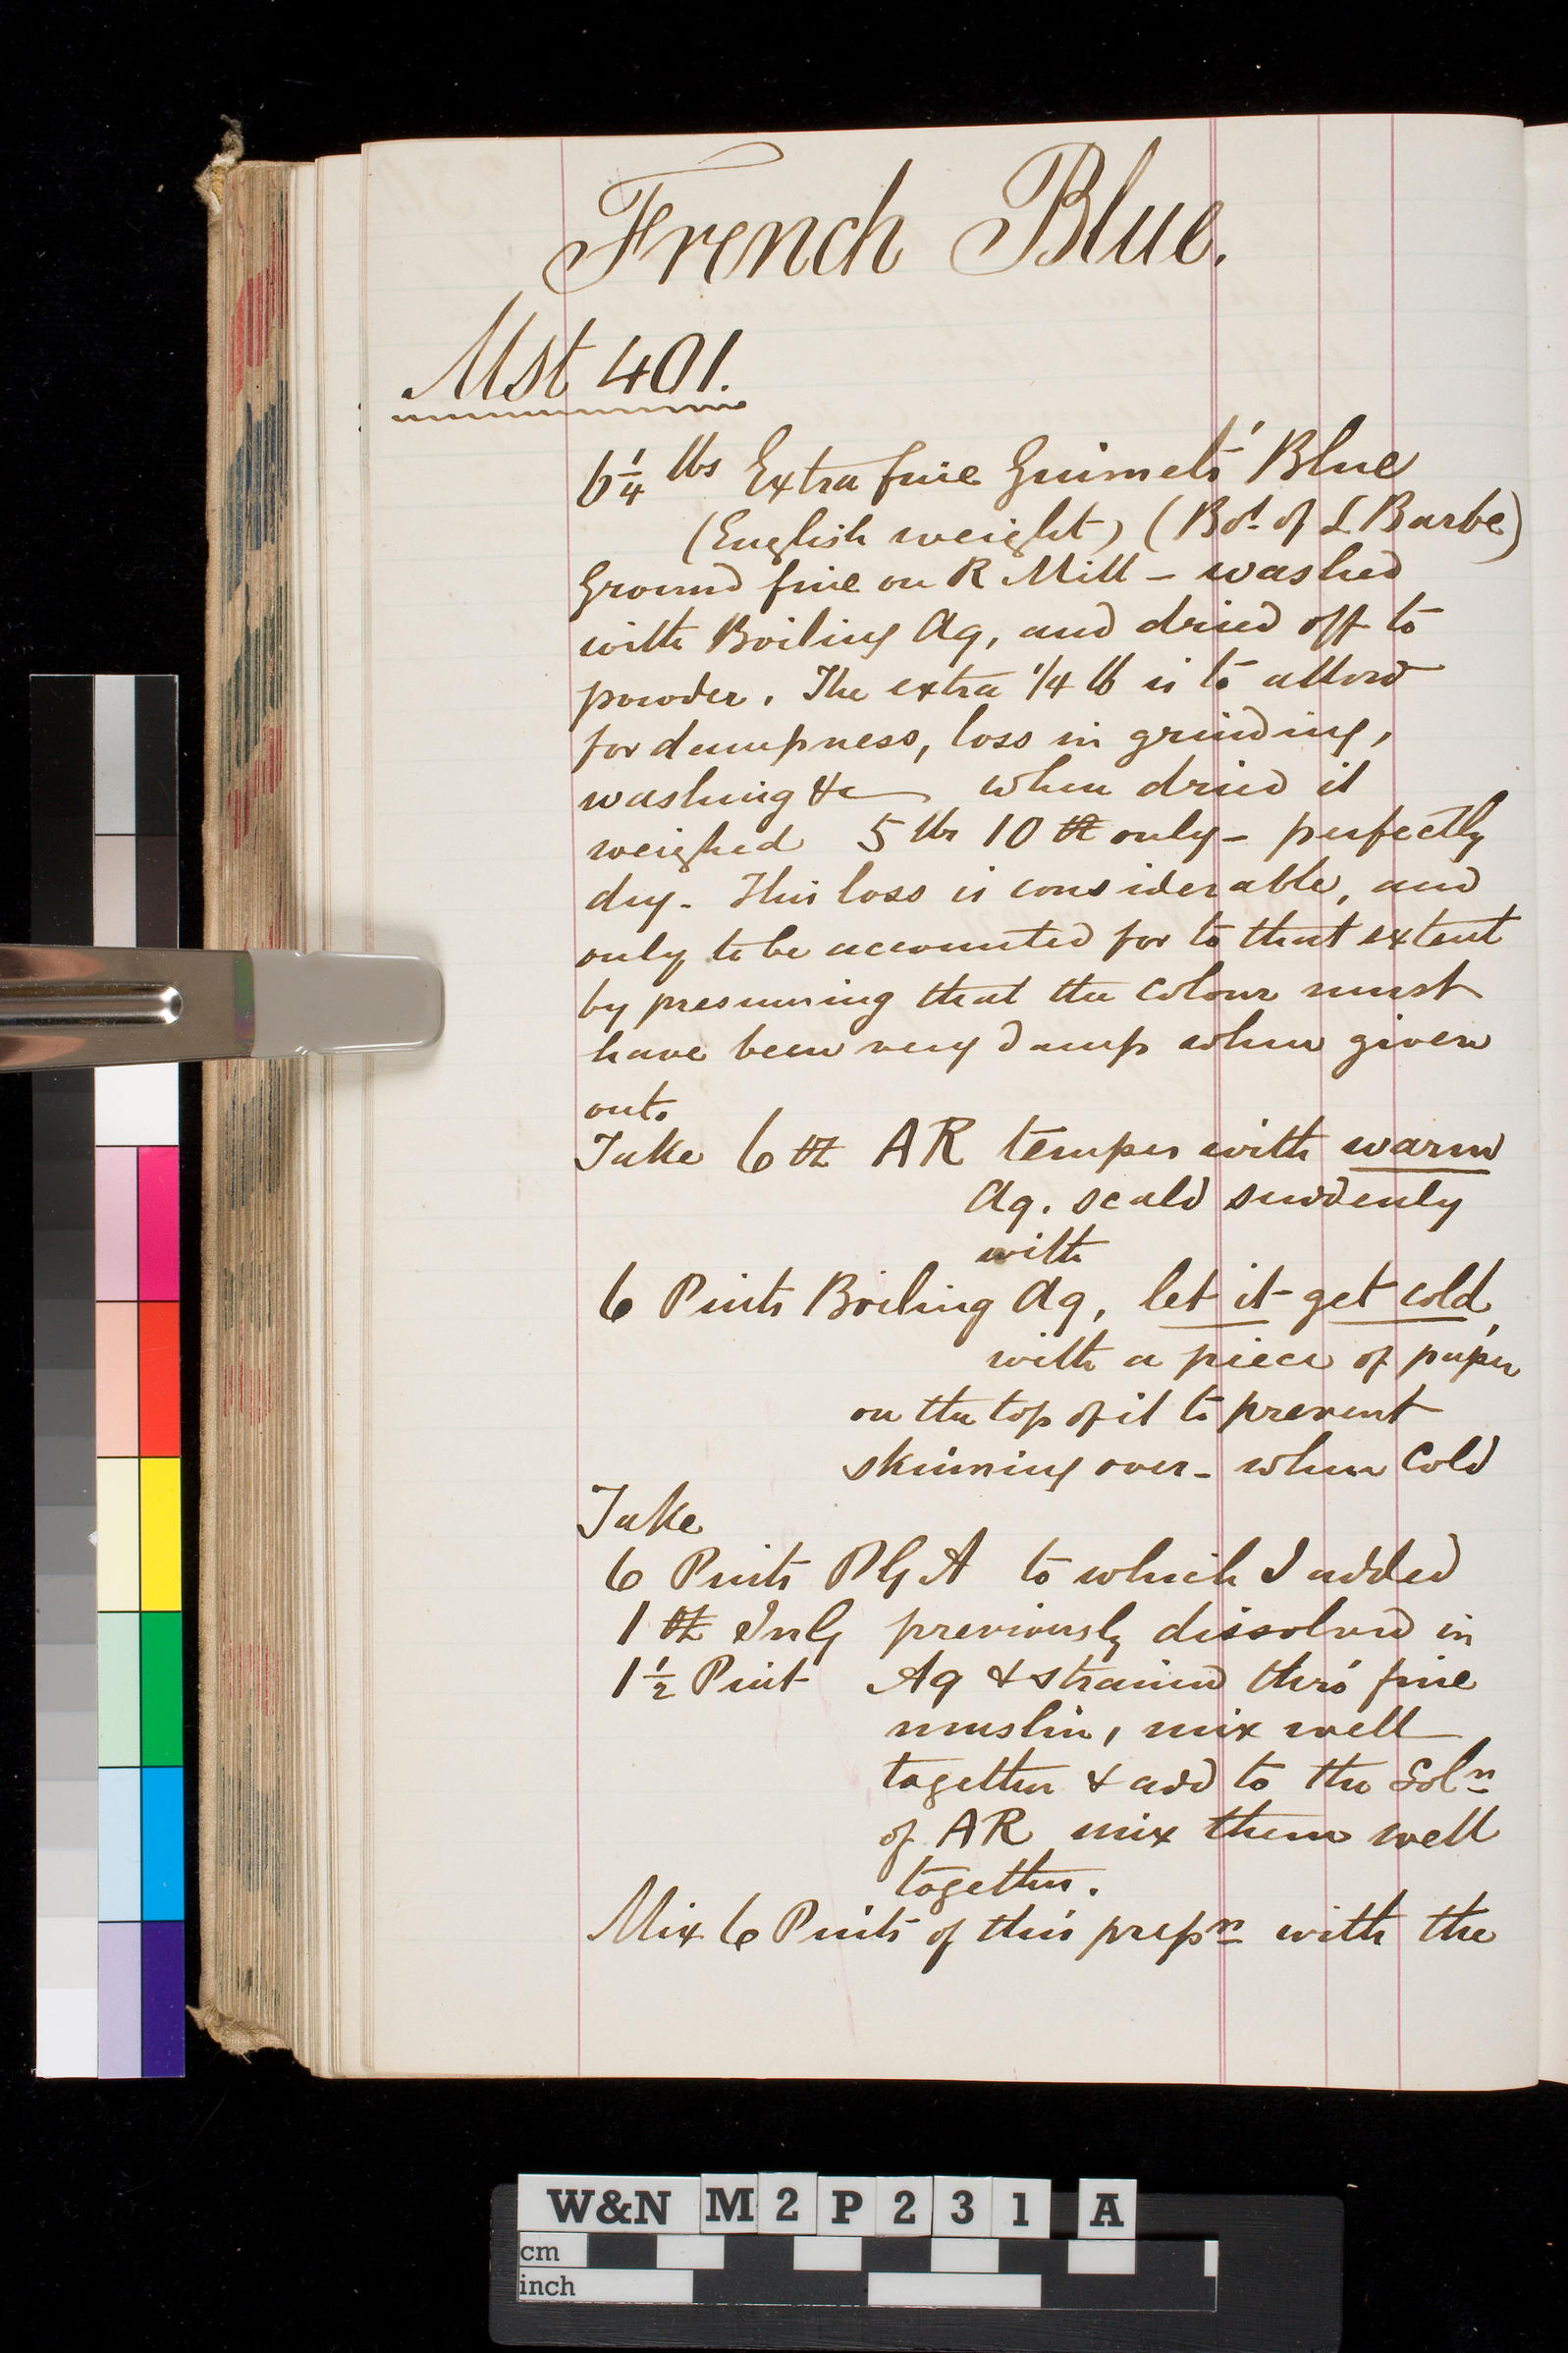 French Blue.
Mst 401.
6 1/4 lbs Extra fine Guimets' Blue
(English weight) (Bot. of L Barbe)
Ground fine on R Mill - washed
with Boiling Aq, and dried off to
powder. The extra 1/4 lb is to allow
for dampness, loss in grinding,
washing &c when dried it
weighed 5 lbs 10 oz only - perfectly
dry. This loss is considerable, and
only to be accounted for to that extent
by presuming that the colour must
have been very damp when given
out.
Take 6 oz AR temper with warm
Aq. scald suddenly
with
6 Pints Boiling Aq, let it get cold,
with a piece of paper
on the top of it to prevent
skinning over - when Cold
Take
6 Pints PGA to which I added
1 oz InG previously dissolved in
1 1/2 Pint Aq & strained thro' fine
muslin, mix well
together & add to the Soln
of AR mix them well
together.
Mix 6 Pints of this prepn with the
W&N M2P231 A
cm
inch